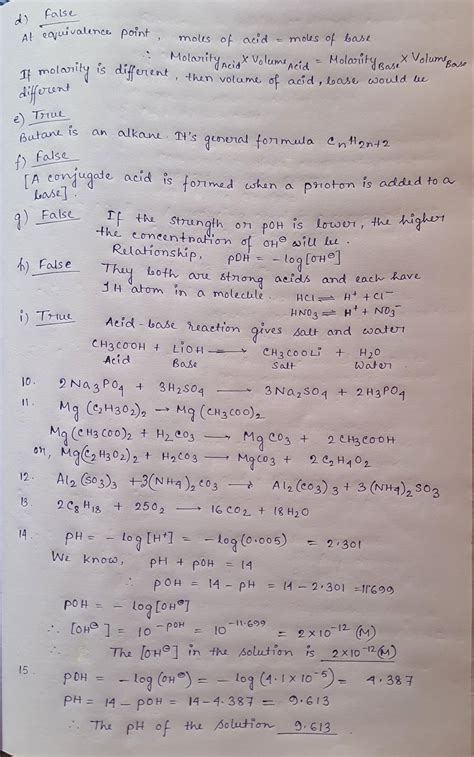 d) False
At equivalence point, moles of acid = moles of base
∴ Molarity Acid × Volume Acid = Molarity Base × Volume Base
If molarity is different, then volume of acid, base would be
different
e) True
Butane is an alkane. It's general formula CnH2n+2
f) False
[A conjugate acid is formed when a proton is added to a
base].
g) False If the strength or pOH is lower, the higher
the concentration of OH⊖ will be.
Relationship, pOH = -log[OH⊖]
h) False They both are strong acids and each have
1H atom in a molecule. HCl ⇌ H⁺ + Cl⁻
HNO3 ⇌ H⁺ + NO3⁻
i) True Acid-base reaction gives salt and water
CH3COOH + LiOH → CH3COOLi + H2O
Acid Base Salt Water
10. 2Na3PO4 + 3H2SO4 → 3Na2SO4 + 2H3PO4
11. Mg(C2H3O2)2 → Mg(CH3COO)2
Mg(CH3COO)2 + H2CO3 → MgCO3 + 2CH3COOH
or, Mg(C2H3O2)2 + H2CO3 → MgCO3 + 2C2H4O2
12. Al2(SO3)3 + 3(NH4)2CO3 → Al2(CO3)3 + 3(NH4)2SO3
13. 2C8H18 + 25O2 → 16CO2 + 18H2O
14. pH = -log[H⁺] = -log(0.005) = 2.301
We know, pH + pOH = 14
∴ pOH = 14 - pH = 14 - 2.301 = 11.699
pOH = -log[OH⊖]
∴ [OH⊖] = 10^-pOH = 10^-11.699 = 2×10^-12 (M)
∴ The [OH⊖] in the solution is 2×10^-12 (M)
15. pOH = -log(OH⊖) = -log(4.1×10^-5) = 4.387
pH = 14 - pOH = 14 - 4.387 = 9.613
∴ The pH of the solution 9.613.